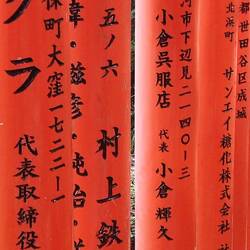 都世田谷区成城
北浜町 サンエイ糖化株式会社
河市下辺見二一四〇ー三
小倉呉服店
代表 小倉輝久
五ノ六 村上鉄
保町大窪一七二二ー一
代表取締役
クラ